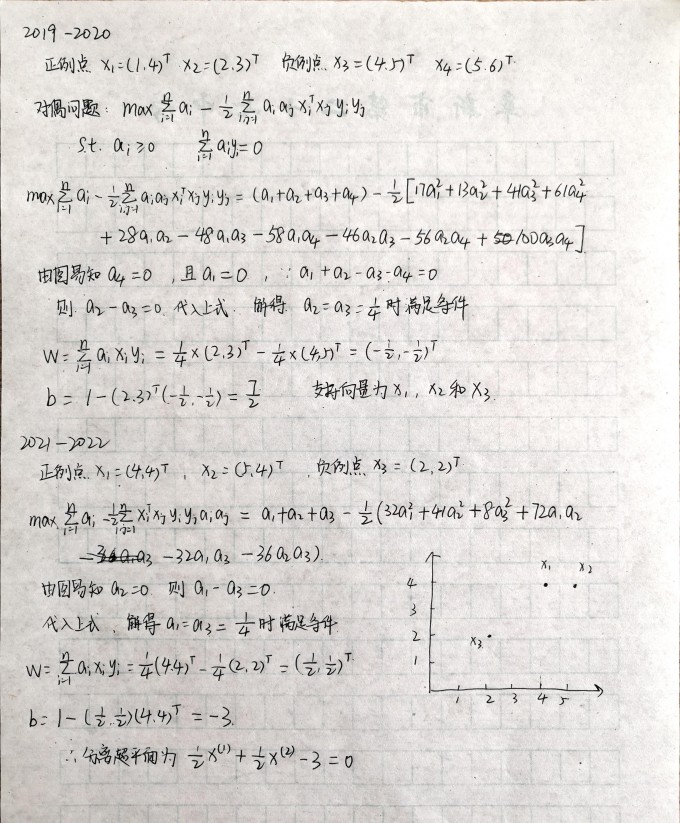 2019-2020
正例点 x₁=(1.4)ᵀ x₂=(2.3)ᵀ 负例点 x₃=(4.5)ᵀ x₄=(5.6)ᵀ
对偶问题: max Σⁿᵢ₌₁ aᵢ - 1/2 Σⁿᵢ,ⱼ₌₁ aᵢ aⱼ xᵢᵀxⱼ yᵢyⱼ
s.t. aᵢ≥0 Σⁿᵢ₌₁ aᵢyᵢ=0
max Σⁿᵢ₌₁ aᵢ - 1/2 Σⁿᵢ,ⱼ₌₁ aᵢaⱼxᵢᵀxⱼyᵢyⱼ = (a₁+a₂+a₃+a₄) - 1/2 [17a₁²+13a₂²+41a₃²+61a₄²
+28a₁a₂-48a₁a₃-58a₁a₄-46a₂a₃-56a₂a₄+100a₃a₄]
由图易知 a₄=0, 且a₁=0, ∵ a₁+a₂-a₃-a₄=0
则 a₂-a₃=0. 代入上式. 解得 a₂=a₃=1/4 时满足条件
w=Σⁿᵢ₌₁ aᵢxᵢyᵢ = 1/4×(2.3)ᵀ - 1/4×(4,5)ᵀ = (-1/2,-1/2)ᵀ
b = 1-(2.3)ᵀ(-1/2,-1/2) = 7/2 支持向量为x₁, x₂和x₃.
2021-2022
正例点 x₁=(4,4)ᵀ, x₂=(5,4)ᵀ, 负例点 x₃=(2,2)ᵀ
max Σⁿᵢ₌₁ aᵢ -1/2 Σⁿᵢ,ⱼ₌₁ xᵢᵀxⱼyᵢyⱼaᵢaⱼ = a₁+a₂+a₃ - 1/2(32a₁²+41a₂²+8a₃²+72a₁a₂
-32a₁a₃-36a₂a₃).
由图易知 a₂=0. 则 a₁-a₃=0.
代入上式, 解得a₁=a₃=1/4时满足条件
w=Σⁿᵢ₌₁ aᵢxᵢyᵢ=1/4(4.4)ᵀ-1/4(2,2)ᵀ=(1/2,1/2)ᵀ
b=1-(1/2,1/2)(4.4)ᵀ=-3.
∴分离超平面为 1/2x⁽¹⁾+1/2x⁽²⁾-3=0
x₁ x₂
4
3
2 x₃
1
1 2 3 4 5